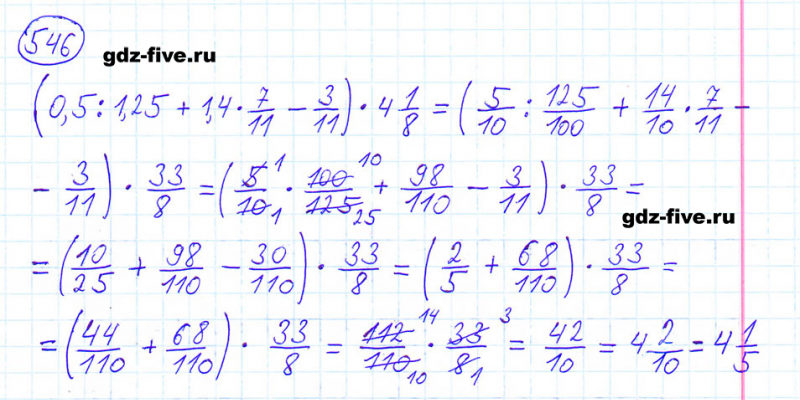 546 gdz-five.ru
(0,5 : 1,25 + 1,4 · 7/11 − 3/11) · 4 1/8 = (5/10 : 125/100 + 14/10 · 7/11 −
− 3/11) · 33/8 = (5/10 1 1 · 100/125 10 25 + 98/110 − 3/11) · 33/8 =
gdz-five.ru
= (10/25 + 98/110 − 30/110) · 33/8 = (2/5 + 68/110) · 33/8 =
= (44/110 + 68/110) · 33/8 = 112/110 14 10 · 33/8 3 1 = 42/10 = 4 2/10 = 4 1/5